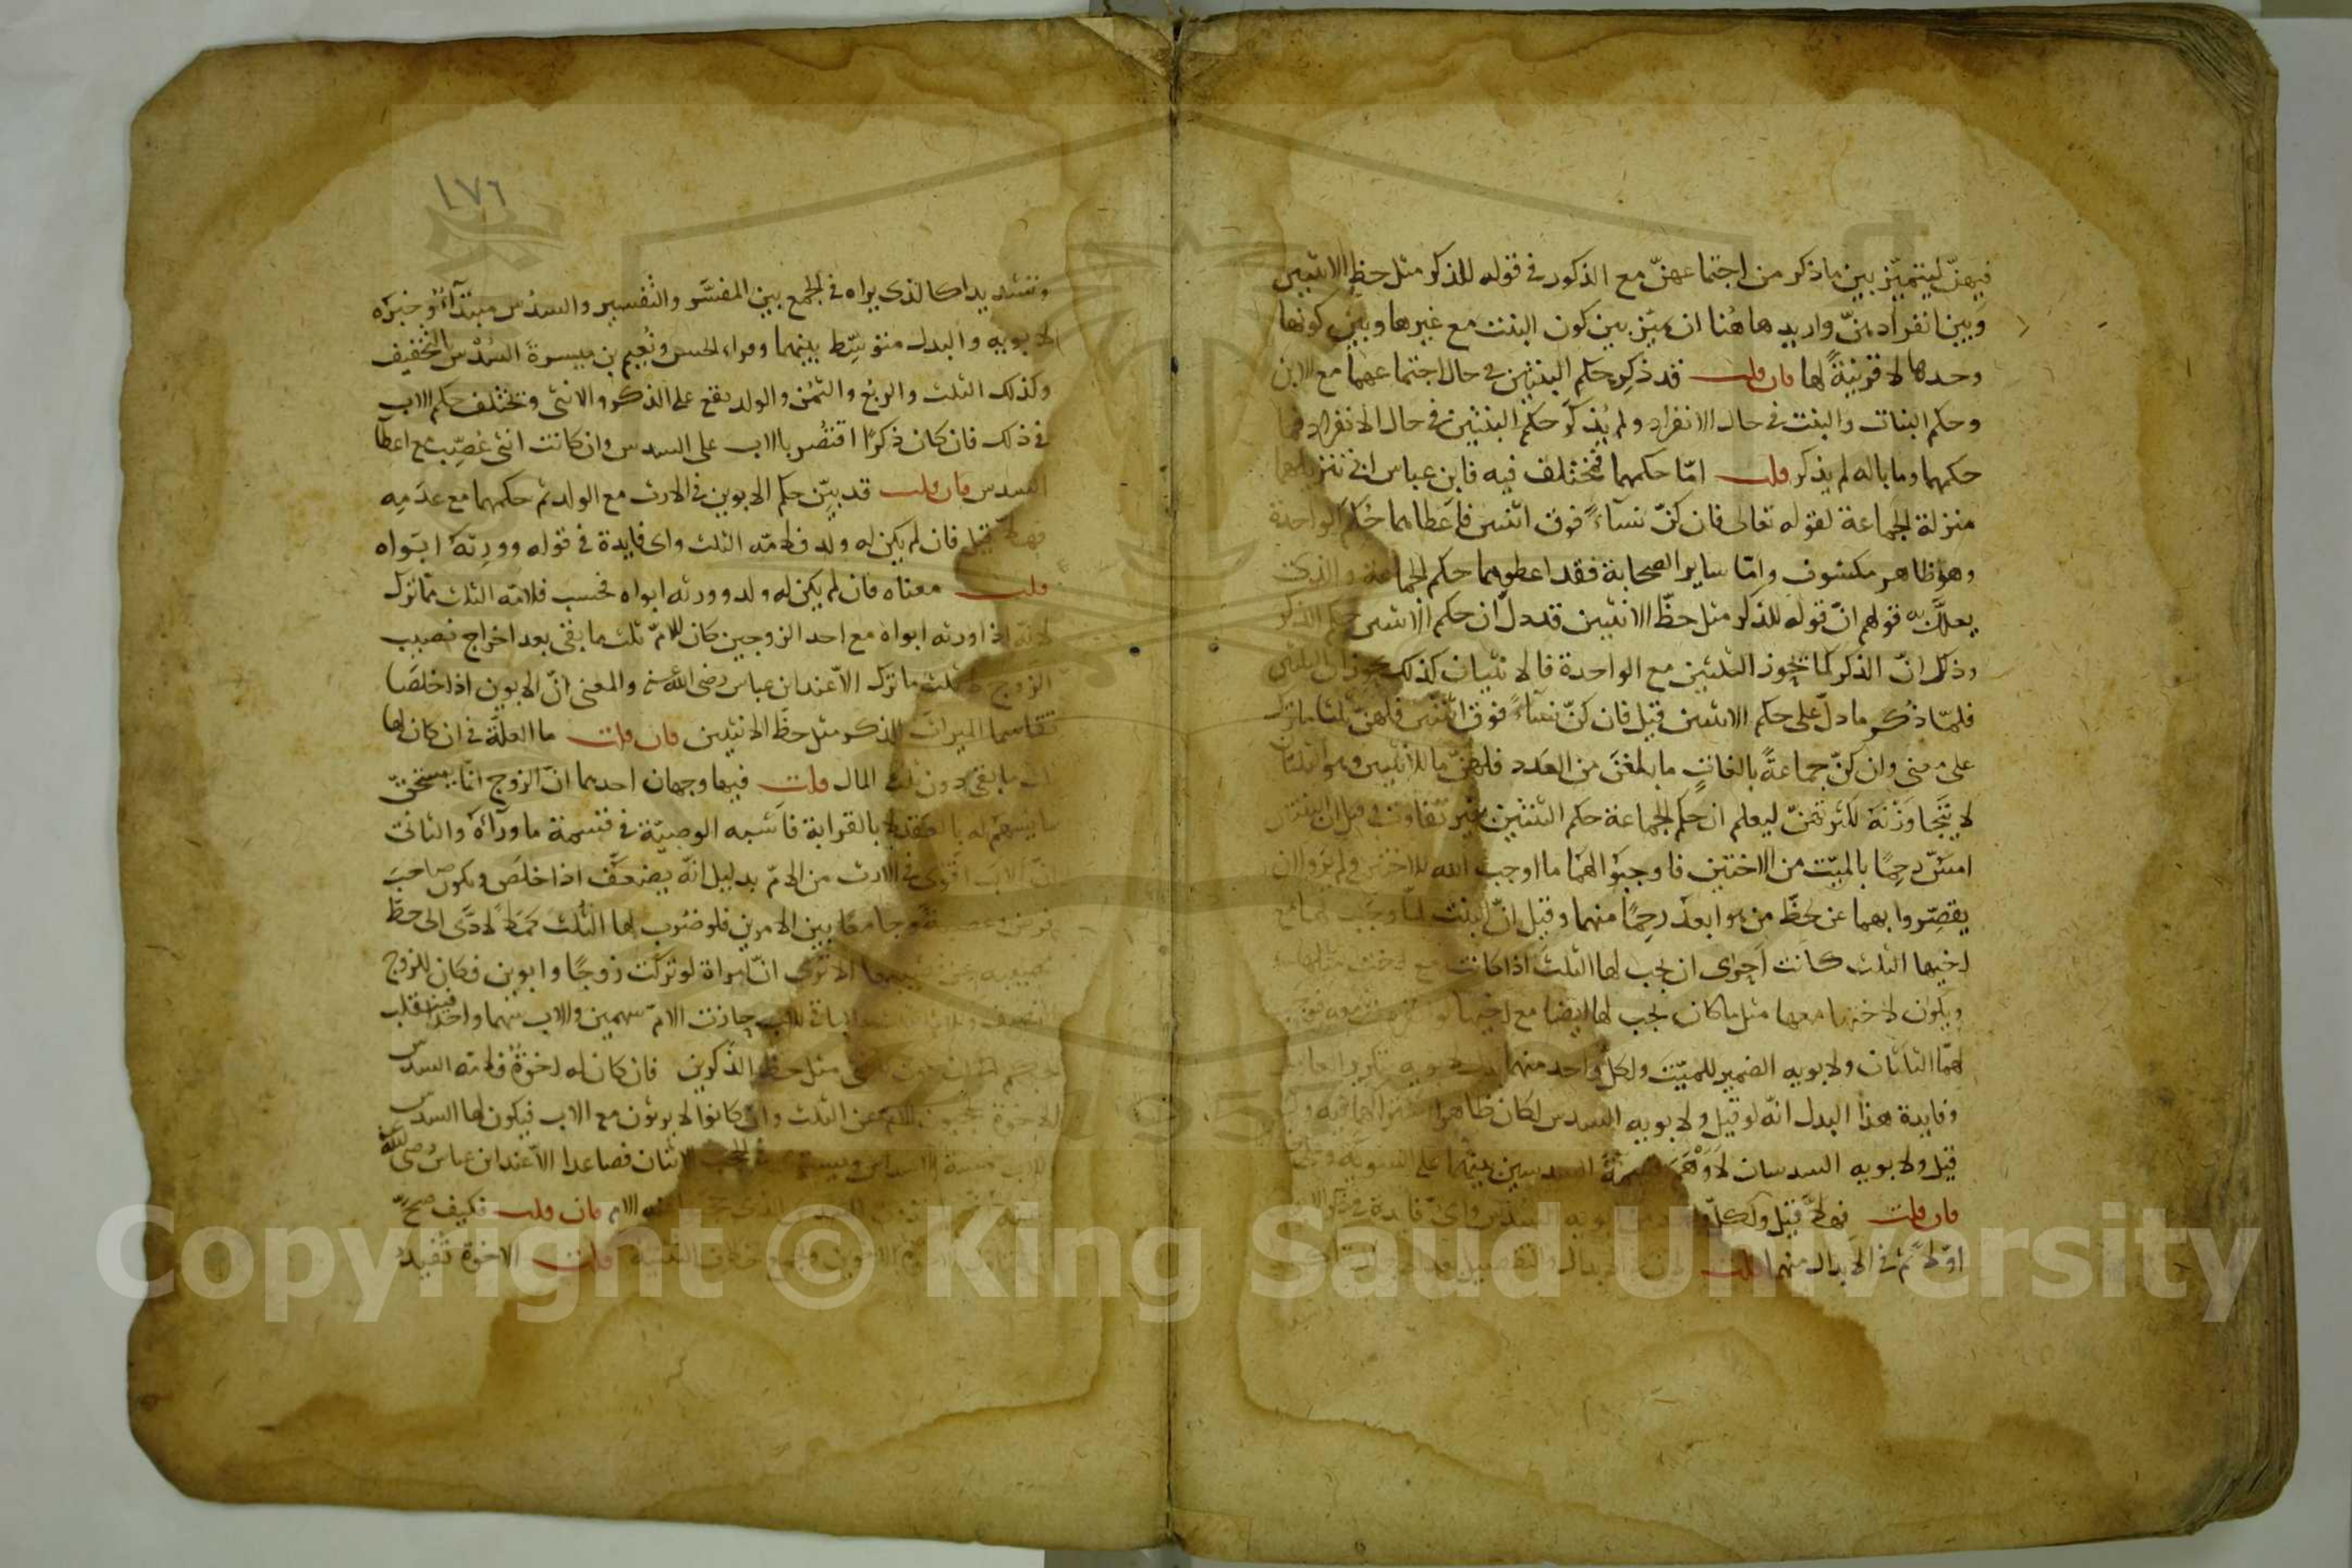 فيهنّ ليتميّز بين ما ذكر من اجتماعهنّ مع الذكور في قوله للذكر مثل حظ الانثيين
وبين انفرادهنّ واريد هاهُنا ان يميّز بين كون البنت مع غيرها وبين كونها
وحدها لا قرينةً لها فان قلت قد ذُكِر حكم البنتين في حال اجتماعهما مع الابن
وحكم البنات والبنت في حال الانفراد ولم يُذكَر حكم البنتين في حال الانفراد فما
حكمهما وما باله لم يذكر قلت امّا حكمهما فمختلف فيه فابن عباس ابى تنزيلهما
منزلة الجماعة لقوله تعالى فان كنّ نسآءً فوق اثنتين فاعطاهما حكم الواحدة
وهو ظاهر مكشوف وامّا ساير الصحابة فقد اعطوهما حكم الجماعة والذي
يعلّل به قولهم انّ قوله للذكر مثل حظّ الانثيين قد دلّ ان حكم الانثيين حكم الذكر
وذلك انّ الذكر كما يحوز الثلثين مع الواحدة فالانثيان كذلك يحوزان الثلثين
فلمّا ذُكر ما دلّ على حكم الانثيين قيل فان كنّ نسآءً فوق اثنتين فلهنّ ثلثا ما ترك
على معنى وان كنّ جماعةً بالغاتٍ ما بلغن من العدد فلهنّ ما للانثيين وهو الثلثان
لا يتجاوزنه لكثرتهنّ ليعلم ان حكم الجماعة حكم الثنتين بغير تفاوت وقيل ان الثنتين
امسّ رحِمًا بالميّت من الاختين فاوجبوا لهما ما اوجب الله للاختين ولم يروا ان
يقصِّروا بهما عن حظّ من هو ابعد رحِمًا منهما وقيل انّ البنت لمّا وجب لها مع
اخيها الثلث كانت احرى ان يجب لها الثلث اذا كانت مع اخت مثلها
ويكون لاختها معها مثل ما كان يجب لها ايضا مع اخيها لو انفردت معه فوجب
لهما الثلثان ولابويه الضمير للميّت ولكل واحد منهما بدل من لابويه بتكرير العامل
وفايدة هذا البدل انّه لو قيل ولابويه السدس لكان ظاهره اشتراكهما فيه ولو
قيل ولابويه السدسان لأوهم قسمة السدسين بينهما على التسوية وعلى
فان قلت فهلّا قيل ولكلّ واحد من ابويه السدس واىّ فايدة في ذكر الابوين
اوّلا ثم في الابدال منهما قلت لان في الابدال والتفصيل بعد الاجمال
١٧٦
وتشديدا كالذي يراه في الجمع بين المفسَّر والتفسير والسدس مبتدآءٌ وخبره
لابويه والبدل متوسّط بينهما وقراء الحسن ونعيم بن ميسرة السُدْس بالتخفيف
وكذلك الثلث والربع والثمْن والولد يقع على الذكر والانثى ويختلف حكم الاب
في ذلك فان كان ذكرًا اقتُصر بالاب على السدس وان كانت انثى عُصِّب مع اعطآ
السدس فان قلت قد بيّن حكم الابوين في الارث مع الولد ثم حكمهما مع عدمه
فهلّا قيل فان لم يكن له ولد فلامّه الثلث واى فايدة في قوله وورثه ابواه
قلت معناه فان لم يكن له ولد وورثه ابواه فحسب فلامّه الثلث مما ترك
لانه اذا ورثه ابواه مع احد الزوجين كان للامّ ثلث ما بقى بعد اخراج نصيب
الزوج لا ثلث ما ترك الّا عند ابن عباس رضى الله عنه والمعنى انّ الابوين اذا خلصا
تقاسما الميراث للذكر مثل حظّ الانثيين فان قلت ما العلّة في ان كان لها
ثلث ما بقى دون ثلث المال قلت فيها وجهان احدهما انّ الزوج انّما يستحقّ
ما يسهم له بالعقد لا بالقرابة فاشبه الوصيّة في قسمة ما ورآءه والثاني
انّ الاب اقوى في الارث من الامّ بدليل انّه يضعَّف اذا خلصَ ويكون صاحب
فرض وعصبةً وجامعًا بين الامرين فلو ضُرب لها الثلث كَمَلًا لادّى الى حطّ
نصيبه عن نصيبها الا ترى انّ امراة لو تركت زوجًا وابوين فكان للزوج
النصف وللام الثلث والباقي للاب حازت الامّ سهمين والاب سهما واحدًا فينقلب
الحكم الى ان يكون للانثى مثل حظّ الذكرين فان كان له اخوة فلامّه السدس
الاخوة يحجبون الامّ عن الثلث وان كانوا لا يرثون مع الاب فيكون لها السدس
وللاب خمسة الاسداس ويستوى في الحجب الاثنان فصاعدا الّا عند ابن عباس رضى الله عنه
الام فان قلت فكيف صحّ
الاخوين والجمع خلاف التثنية قلت الاخوة تفيد
Copyright © King Saud University
1957